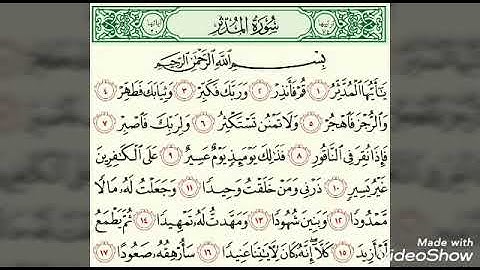 سُورَةُ المُدَّثِّرِ
بِسْمِ اللَّهِ الرَّحْمَٰنِ الرَّحِيمِ
يَا أَيُّهَا الْمُدَّثِّرُ ١ قُمْ فَأَنذِرْ ٢ وَرَبَّكَ فَكَبِّرْ ٣ وَثِيَابَكَ فَطَهِّرْ ٤
وَالرُّجْزَ فَاهْجُرْ ٥ وَلَا تَمْنُن تَسْتَكْثِرُ ٦ وَلِرَبِّكَ فَاصْبِرْ ٧
فَإِذَا نُقِرَ فِي النَّاقُورِ ٨ فَذَٰلِكَ يَوْمَئِذٍ يَوْمٌ عَسِيرٌ ٩ عَلَى الْكَافِرِينَ
غَيْرُ يَسِيرٍ ١٠ ذَرْنِي وَمَنْ خَلَقْتُ وَحِيدًا ١١ وَجَعَلْتُ لَهُ مَالًا
مَّمْدُودًا ١٢ وَبَنِينَ شُهُودًا ١٣ وَمَهَّدتُّ لَهُ تَمْهِيدًا ١٤ ثُمَّ يَطْمَعُ
أَنْ أَزِيدَ ١٥ كَلَّا إِنَّهُ كَانَ لِآيَاتِنَا عَنِيدًا ١٦ سَأُرْهِقُهُ صَعُودًا ١٧
Made with
VideoShow